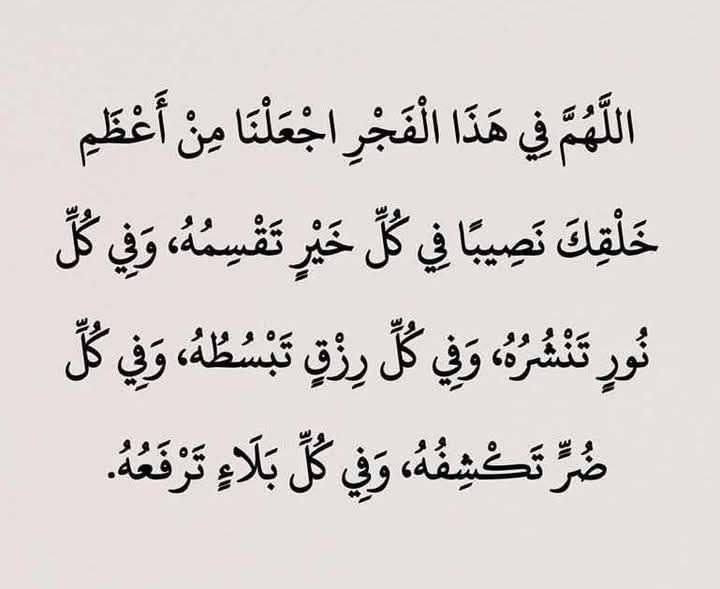 اللَّهُمَّ فِي هَذَا الْفَجْرِ اجْعَلْنَا مِنْ أَعْظَمِ
خَلْقِكَ نَصِيبًا فِي كُلِّ خَيْرٍ تَقْسِمُهُ، وَفِي كُلِّ
نُورٍ تَنْشُرُهُ، وَفِي كُلِّ رِزْقٍ تَبْسُطُهُ، وَفِي كُلِّ
ضُرٍّ تَكْشِفُهُ، وَفِي كُلِّ بَلَاءٍ تَرْفَعُهُ.